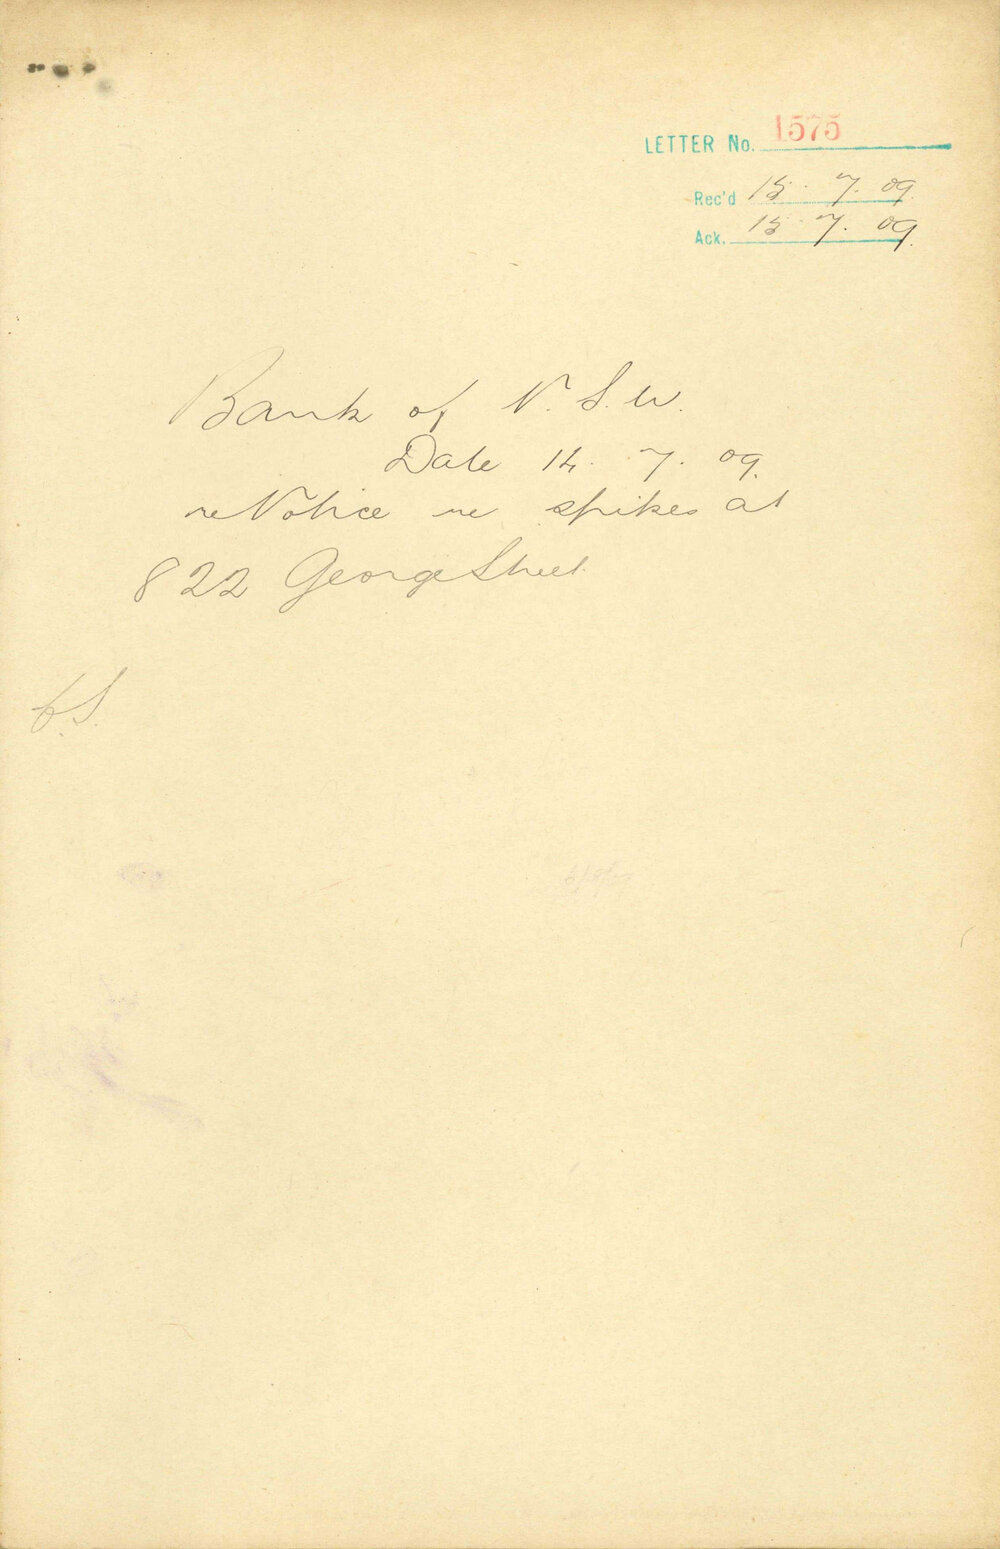 LETTER No. 1575
Rec'd 15. 7. 09.
Ack. 15. 7. 09.
Bank of N.S.W.
Date 14. 7. 09.
re Notice re spikes at
822 George Street
C.S.